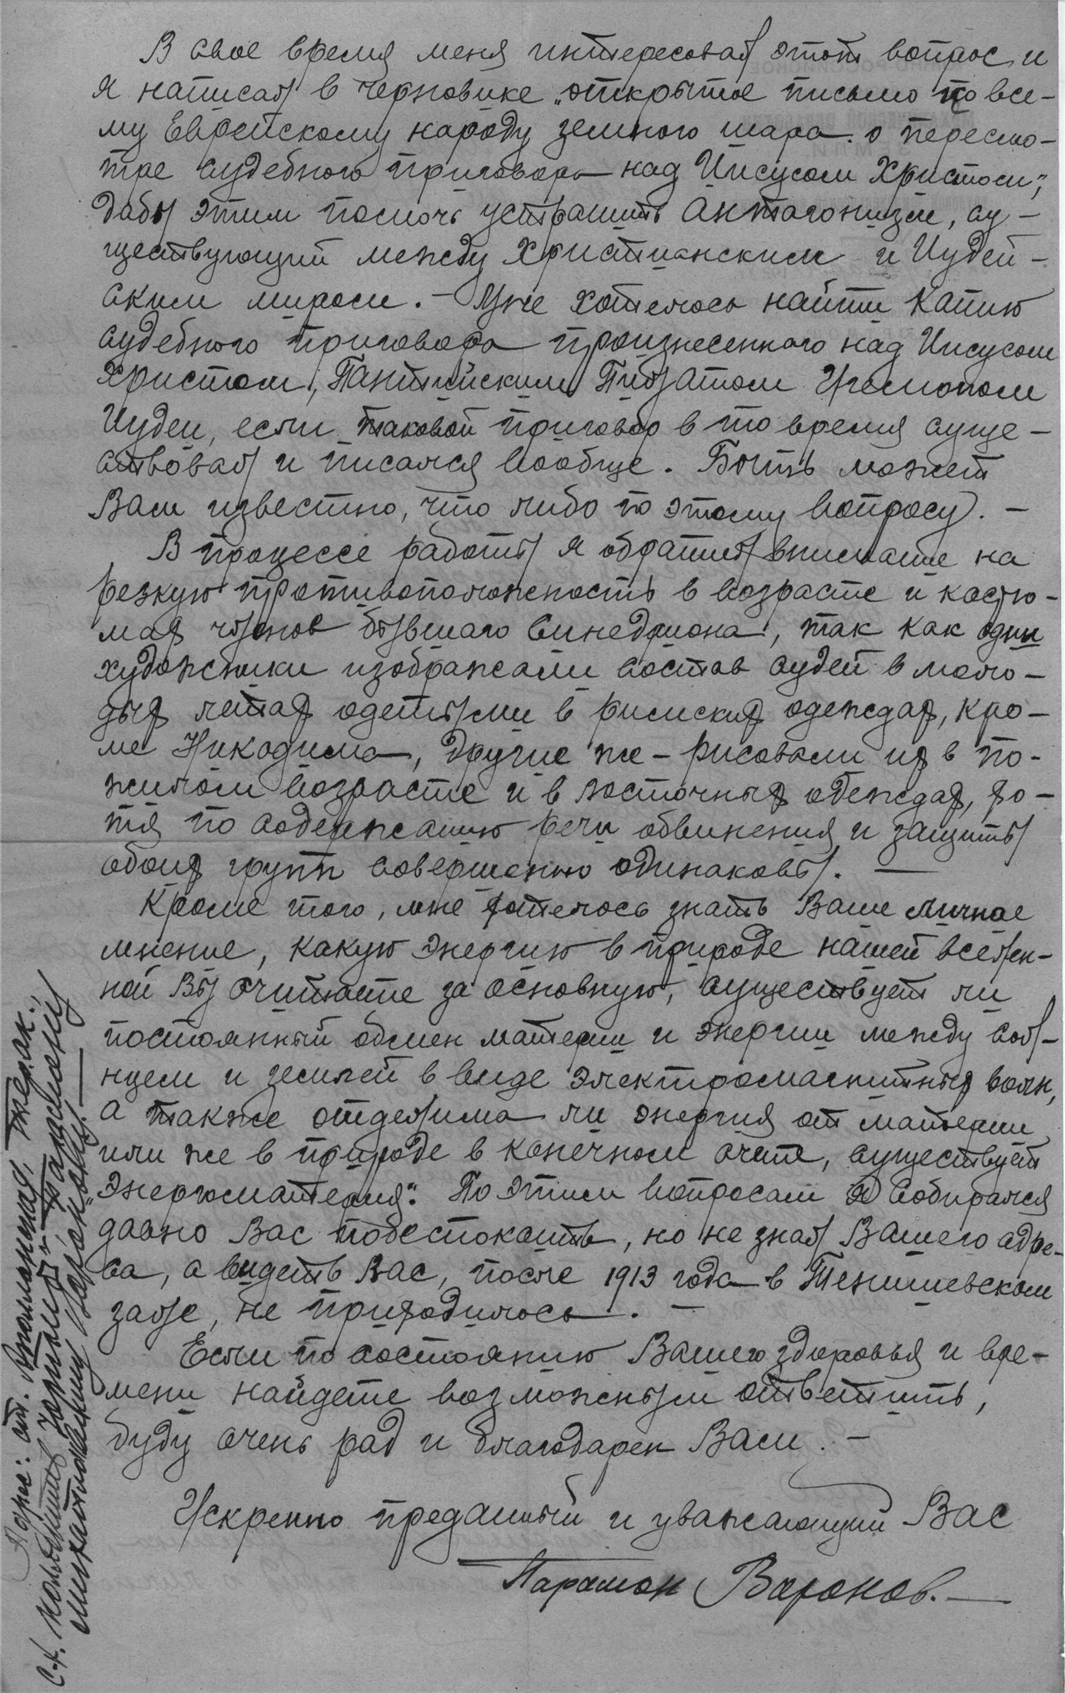 В свое время меня интересовал этот вопрос и
я написал в черновике „открытое письмо ко все-
му Еврейскому народу земного шара о пересмо-
тре судебного приговора над Иисусом Христом“,
дабы этим помочь устранить антагонизм, су-
ществующий между Христианским и Иудей-
ским миром. – Мне хотелось найти копию
судебного приговора произнесенного над Иисусом
Христом, Понтийским Пилатом Игемоном
Иудеи, если таковой приговор в то время суще-
ствовал и писался вообще. Быть может
Вам известно, что либо по этому вопросу. –
В процессе работы я обратил внимание на
резкую противоположность в возрасте и костю-
мах членов бывшаго Синедриона, так как одни
художники изображали состав судей в моло-
дых летах одетыми в римских одеждах, кро-
ме Никодима, другие же – рисовали их в по-
жилом возрасте и в восточных одеждах, хо-
тя по содержанию речи обвинения и защиты
обоих групп совершенно одинаковы. –
Кроме того, мне хотелось знать Ваше личное
мнение, какую энергию в природе нашей вселен-
ной Вы считаете за основную, существует ли
постоянный обмен материи и энергии между сол-
нцем и землей в виде электромагнитных волн,
а также отделима ли энергия от материи
или же в природе в конечном счете, существует
„энергоматерия“. По этим вопросам я собирался
давно Вас побеспокоить, но не знал Вашего адре-
са, а видеть Вас, после 1913 года в Тенишевском
зале, не приходилось. –
Если по состоянию Вашего здоровья и вре-
мени найдете возможным ответить,
буду очень рад и благодарен Вам. –
Искренно преданный и уважающий Вас
Парамон Варонов. –
Адрес: ст.
с-х.